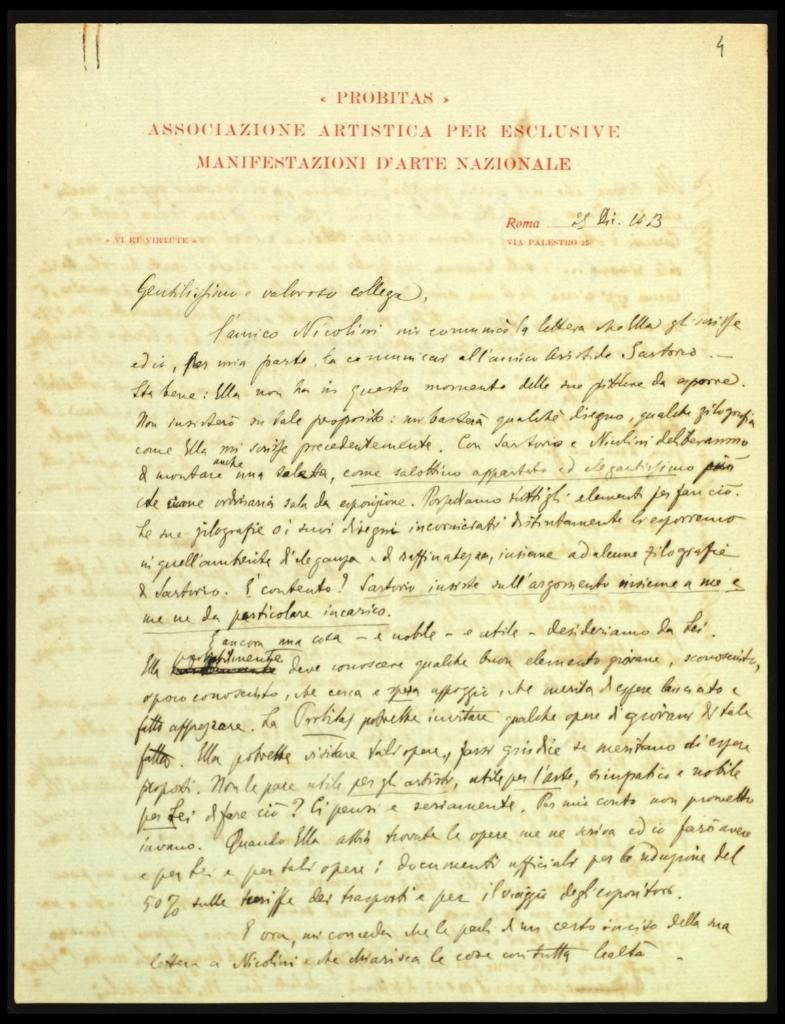 4
« PROBITAS »
ASSOCIAZIONE ARTISTICA PER ESCLUSIVE
MANIFESTAZIONI D'ARTE NAZIONALE
Roma 21 Dic.
« VI ET VIRTUTE »
VIA PALESTRO 25
Gentilissimo e valoroso collega,
l'amico Nicolini mi comunicò la lettera che Ella gli scrisse
ed io, per mia parte, la comunicai all'amico Aristide Sartorio. —
Sta bene: Ella non ha in questo momento delle sue pitture da esporre.
Non insisterò su tale proposito: mi basterà qualche disegno, qualche zilografia
come Ella mi scrisse precedentemente. Con Sartorio e Nicolini deliberammo
di montare anche una saletta, come salottino appartato ed elegantissimo più
che come ordinaria sala da esposizione. Possediamo tutti gli elementi per far ciò.
Le sue zilografie o i suoi disegni incorniciati distintamente li esporremo
in quell'ambiente d'eleganza e di raffinatezza, insieme ad alcune zilografie
di Sartorio. È contento? Sartorio insiste sull'argomento insieme a me e
me ne da particolare incarico.
E ancora una cosa – e nobile – e utile – desideriamo da Lei.
Ella probabilmente deve conoscere qualche buon elemento giovane, sconosciuto,
o poco conosciuto, che cerca e spera appoggio, che merita di essere lanciato e
fatto apprezzare. La Probitas potrebbe invitare qualche opera di giovani di tale
fatta. Ella potrebbe visitare tali opere, farsi giudice se meritano di essere
proposti. Non le pare utile per gli artisti, utile per l'arte, simpatico e nobile
per Lei di fare ciò? Ci pensi e seriamente. Per mio conto non prometto
invano. Quando Ella avrà trovate le opere me ne scriva ed io farò avere
e per Lei e per tali opere i documenti ufficiali per la riduzione del
50% sulle tariffe dei trasporti e per il viaggio degli espositori.
E ora, mi conceda che le parli di un certo inciso della sua
lettera a Nicolini e che chiarisca le cose con tutta lealtà.